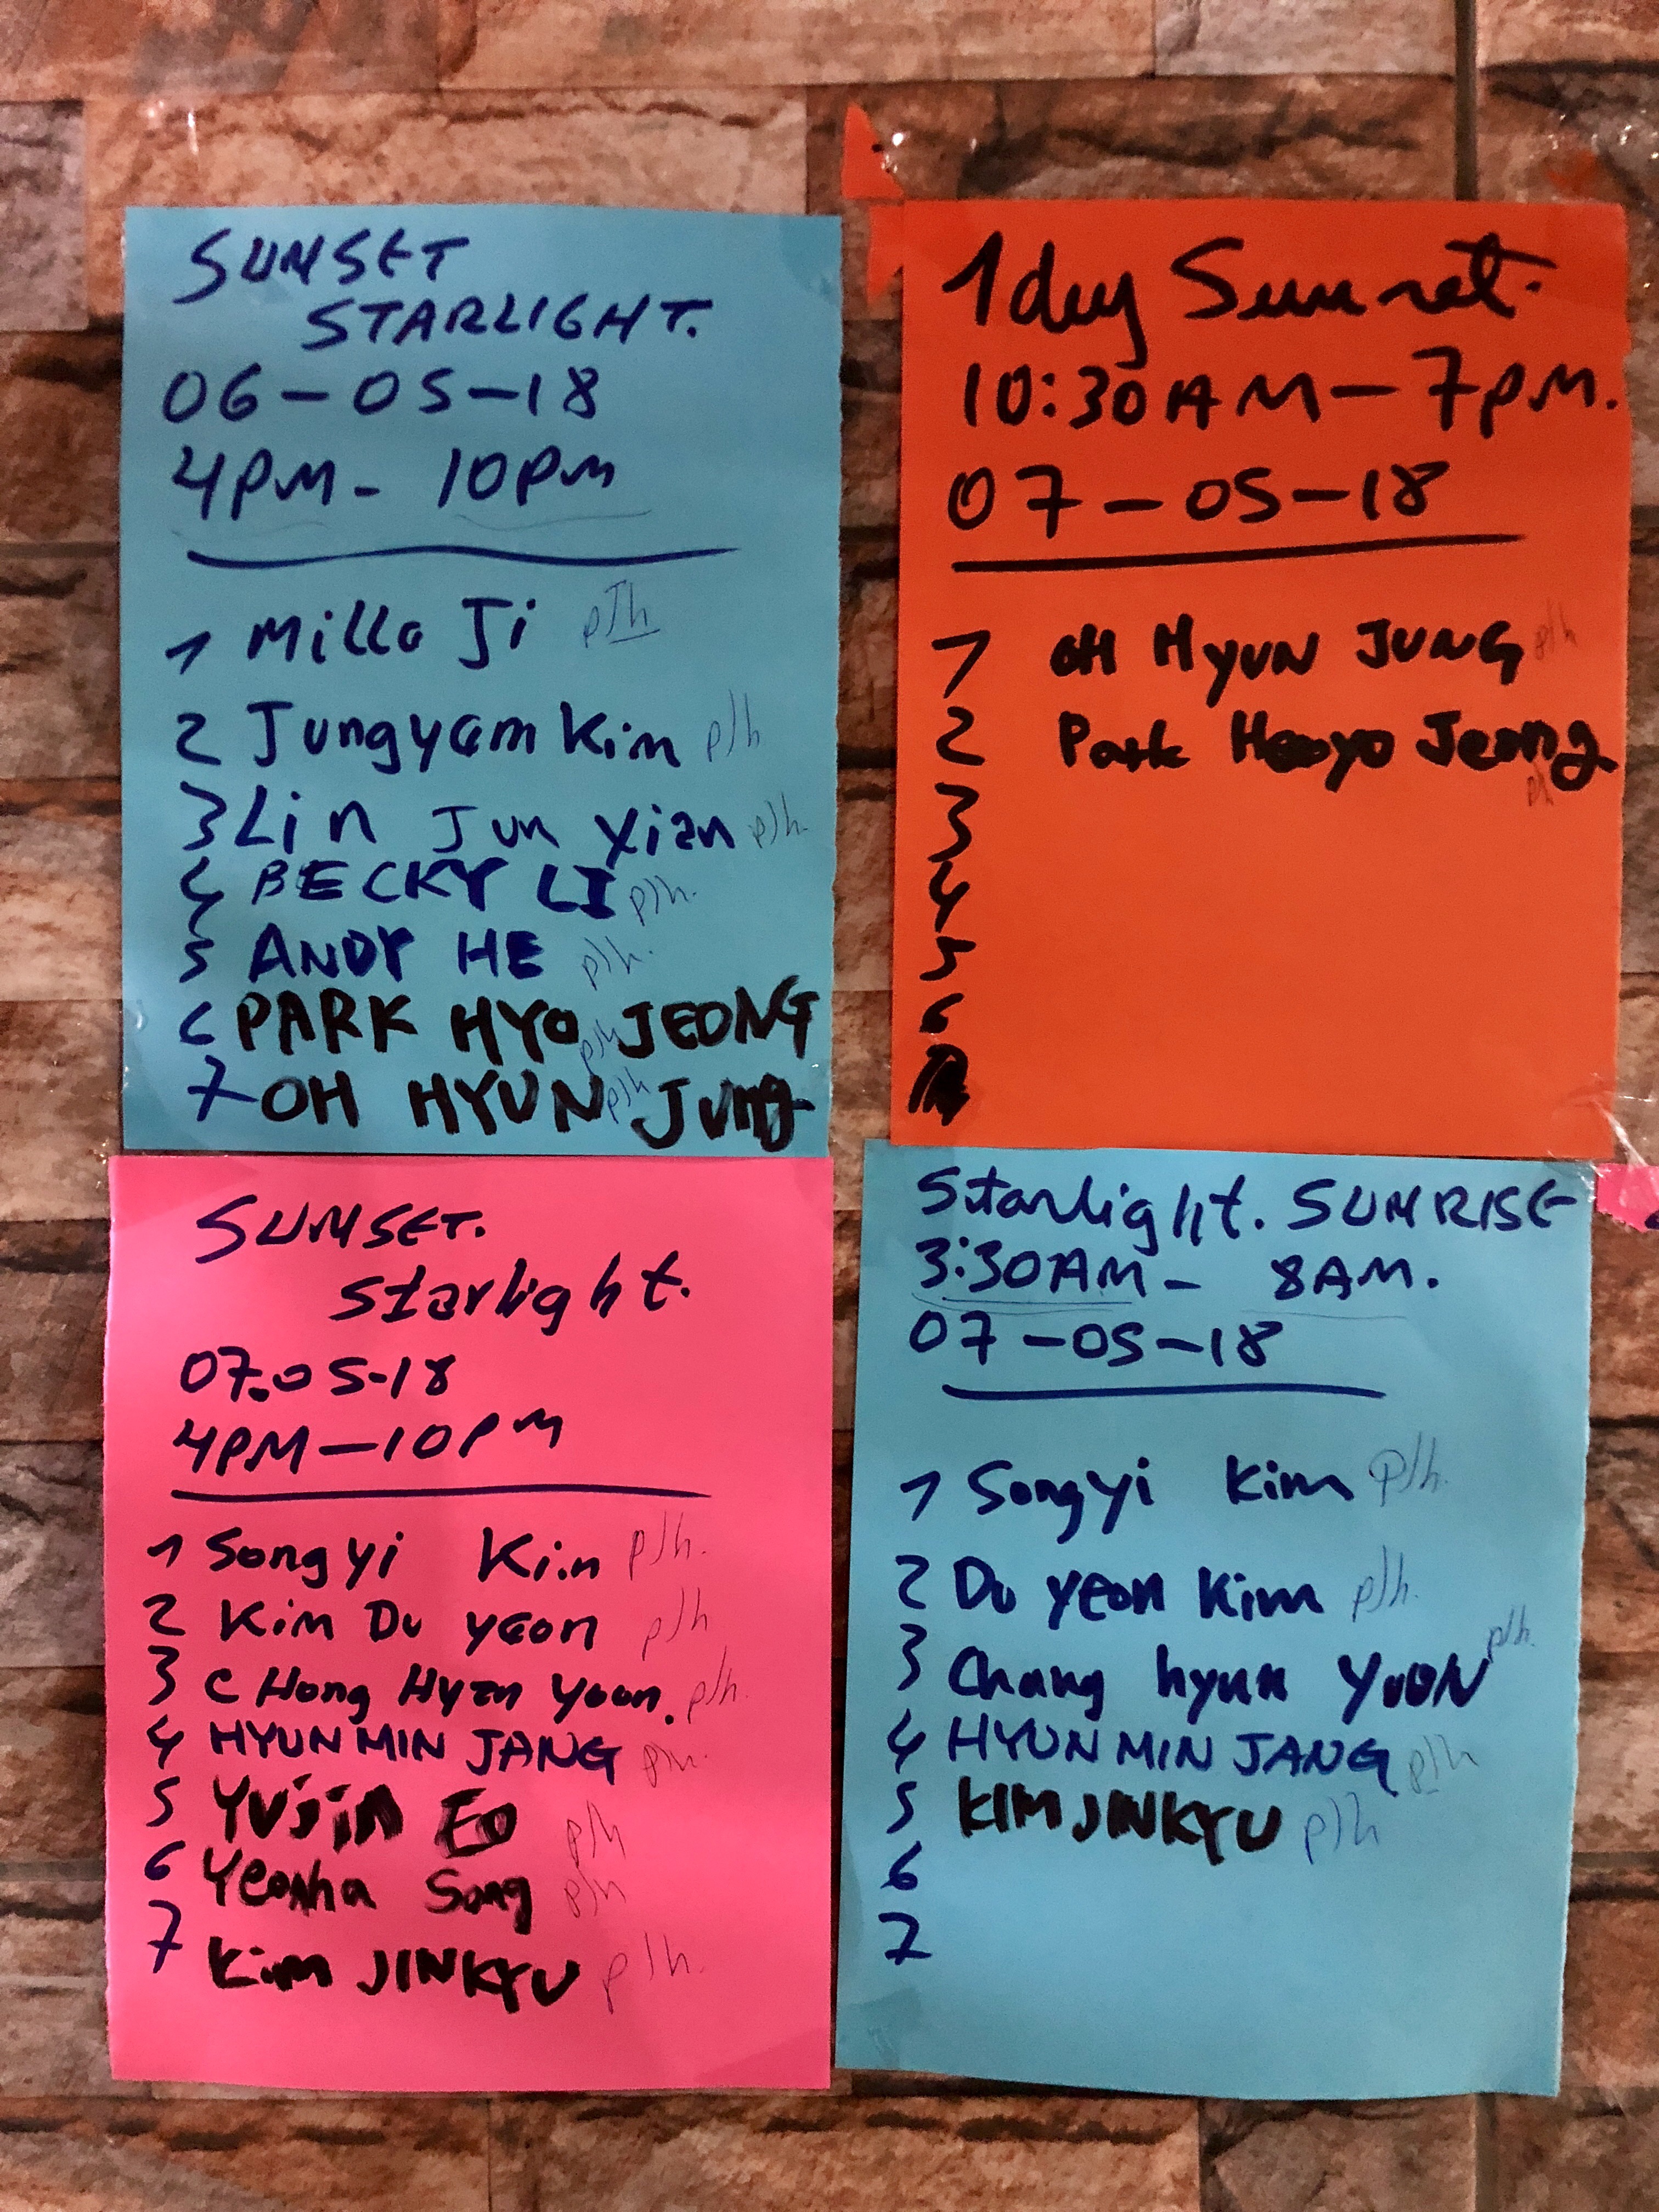 SUNSET
STARLIGHT.
06-05-18
4PM- 10PM
1 Milla Ji p/h
2 Jungyam Kim p/h
3 Lin Jun Xian p/h.
4 BECKY LI p/h.
5 ANDY HE p/h.
6 PARK HYO JEONG p/h
7 OH HYUN Jung p/h
1 day Sunset.
10:30AM-7PM.
07-05-18
1 OH HYUN JUNG p/h
2 Park Jeong
p/h
3
4
5
6
SUNSET.
starlight.
07.05-18
4PM-10PM
1 Songyi Kim p/h.
2 Kim Du yeon p/h
3 CHong Hyen Yoon. p/h.
4 HYUNMIN JANG p/h.
5 YUJIN EO p/h
6 Yeonha Song p/h
7 Kim JINKYU p/h.
Starlight. SUNRISE
3:30AM- 8AM.
07-05-18
1 Songyi Kim p/h.
2 Du Yeon Kim p/h.
3 Chang hyun YOON p/h.
4 HYUNMIN JANG p/h
5 KIM JINKYU p/h
6
7